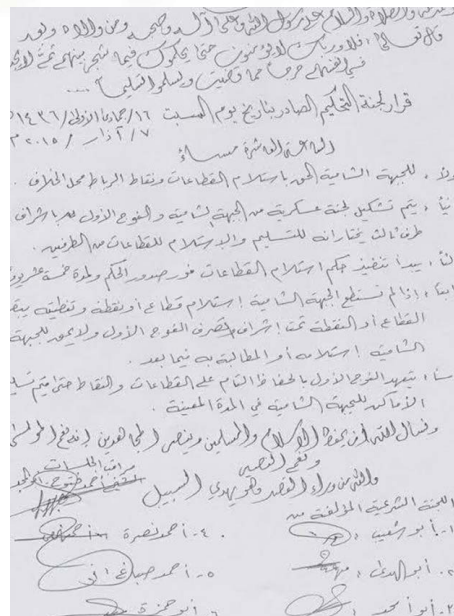 والصلاة والسلام على رسول الله وعلى آله وصحبه ومن والاه وبعد
قال تعالى: فلا وربك لا يؤمنون حتى يحكموك فيما شجر بينهم ثم لا يجدوا
في أنفسهم حرجاً مما قضيت ويسلموا تسليماً ....
قرار لجنة التحكيم الصادر بتاريخ يوم السبت ١٦/جمادى الأولى/١٤٣٦
٧/آذار/٢٠١٥ م
الساعة العاشرة مساءً
للجبهة الشامية الحق باستلام القطاعات ونقاط الرباط محل الخلاف .
يتم تشكيل لجنة عسكرية من الجبهة الشامية و الفوج الأول بإشراف
طرف ثالث يختارانه للتسليم والاستلام للقطاعات من الطرفين .
يبدأ تنفيذ حكم استلام القطاعات فور صدور الحكم ولمدة خمسة عشر يوم
إذا لم تستطع الجبهة الشامية إستلام قطاع أو نقطة وتغطيته يبقى
القطاع أو النقطة تحت إشراف وتصرف الفوج الأول ولا يحق للجبهة
الشامية إستلامه أو المطالبة به فيما بعد .
يتعهد الفوج الأول بالحفاظ التام على القطاعات والنقاط حتى يتم تسليم
الأماكن للجبهة الشامية في المدة المعينة .
ونسأل الله أن يحفظ الإسلام والمسلمين وينصر المجاهدين إنه نعم المولى
ونعم النصير
والله من وراء القصد وهو يهدي السبيل
مراقب الجلسات
اللجنة الشرعية المؤلفة من
١- أبو شعيب
٤- أحمد نصرة
٢- أبو الهدى
٥- أحمد صباغ
٣- أبو أحمد
٦- أبو حمزة